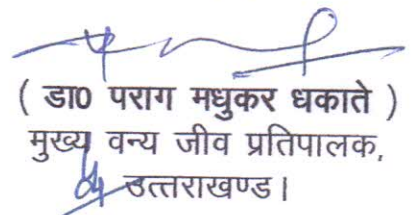 ( डा0 पराग मधुकर धकाते )
मुख्य वन्य जीव प्रतिपालक,
उत्तराखण्ड।